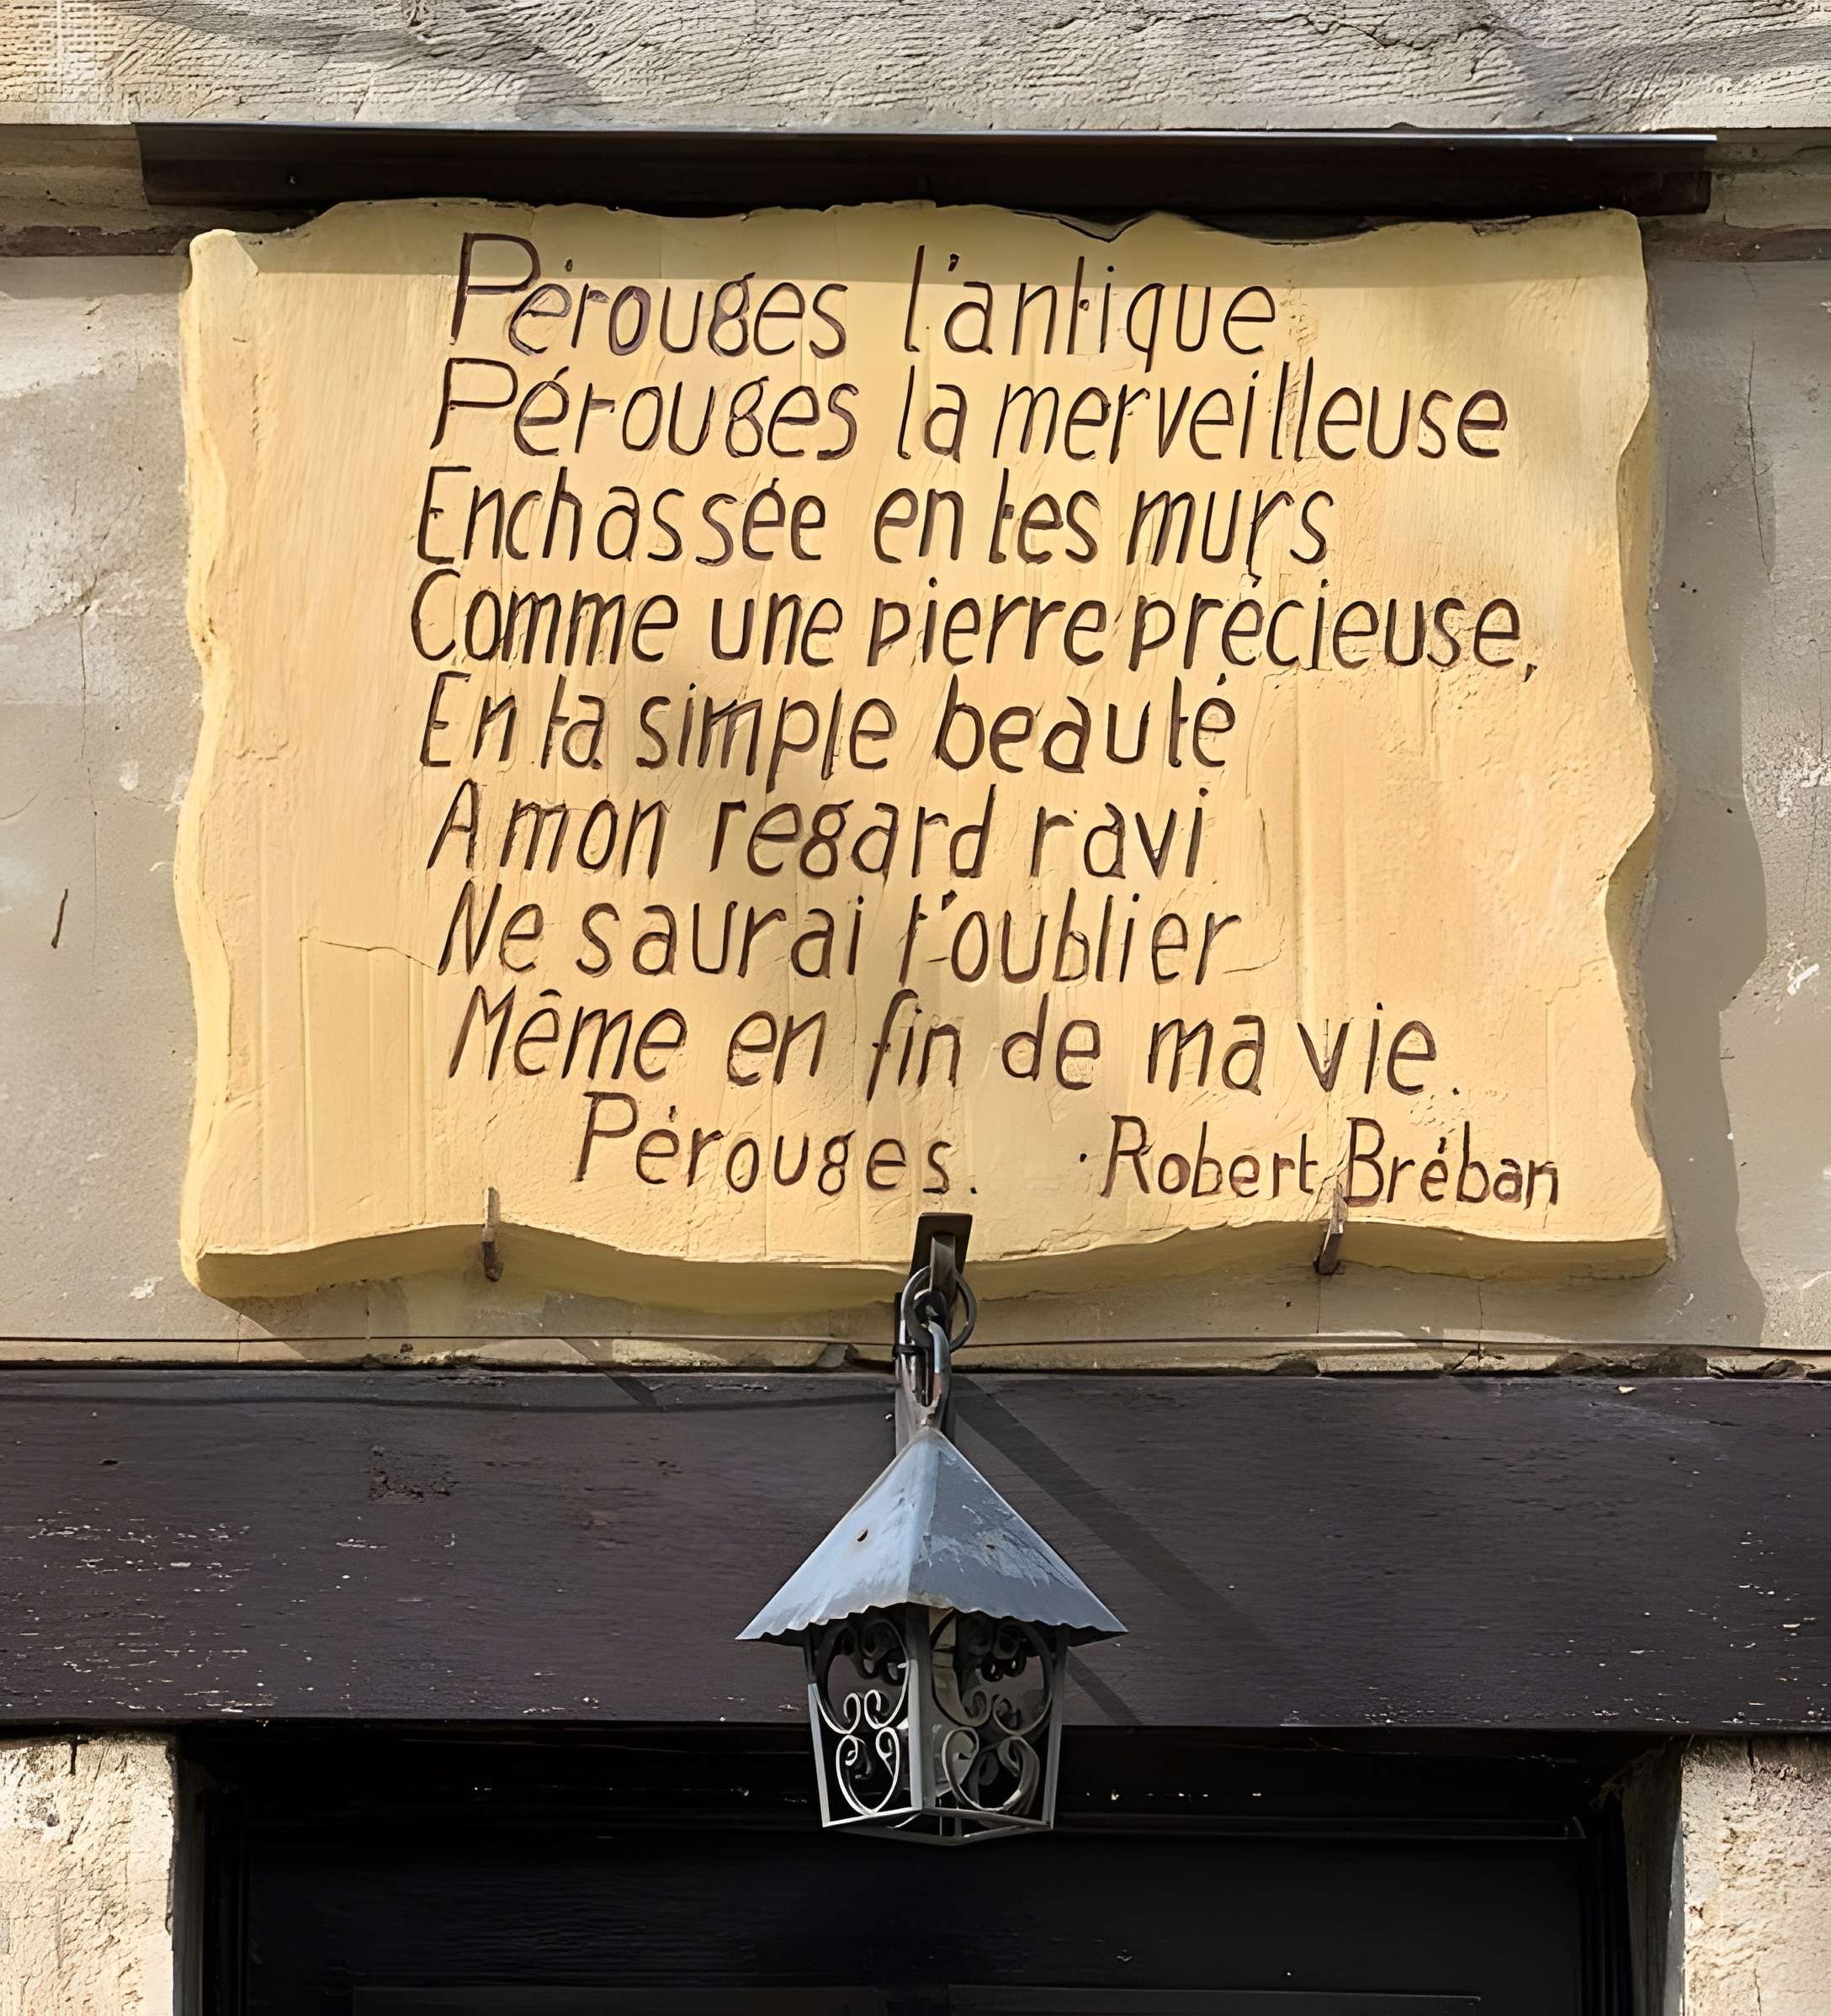 Pérouges l'antique
Pérouges la merveilleuse
Enchassée en tes murs
Comme une pierre précieuse,
En ta simple beauté
A mon regard ravi
Ne saurai t'oublier
Même en fin de ma vie.
Pérouges. Robert Bréban